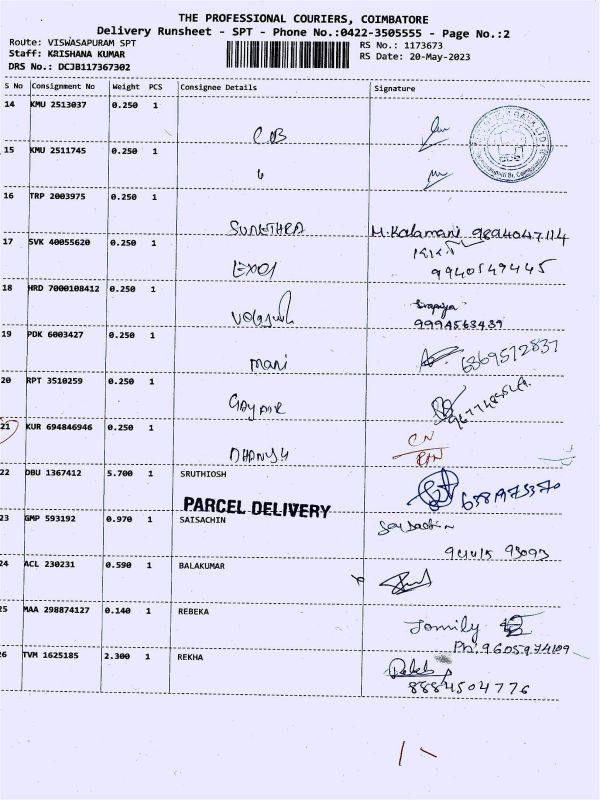 THE PROFESSIONAL COURIERS, COIMBATORE
Delivery Runsheet - SPT - Phone No.:0422-3505555 - Page No.:2
Route: VISWASAPURAM SPT
RS No.: 1173673
Staff: KRISHANA KUMAR
RS Date: 20-May-2023
DRS No.: DCJB117367302
S No Consignment No Weight PCS Consignee Details Signature
14 KMU 2513037 0.250 1
COB
15 KMU 2511745 0.250 1
16 TRP 2003975 0.250 1
SUNETHRA M.Kalamani 9894047114
17 SVK 40055620 0.250 1
EXO1 9940549445
18 HRD 7000108412 0.250 1
9994563439
19 PDK 6003427 0.250 1
mani 6369572837
20 RPT 3510259 0.250 1
21 KUR 694846946 0.250 1
CN
22 DBU 1367412 5.700 1 SRUTHIOSH
PARCEL DELIVERY
23 GMP 593192 0.970 1 SAISACHIN
94415 93093
24 ACL 230231 0.590 1 BALAKUMAR
25 MAA 298874127 0.140 1 REBEKA
Jomily
26 TVM 1625185 2.300 1 REKHA
8884504776